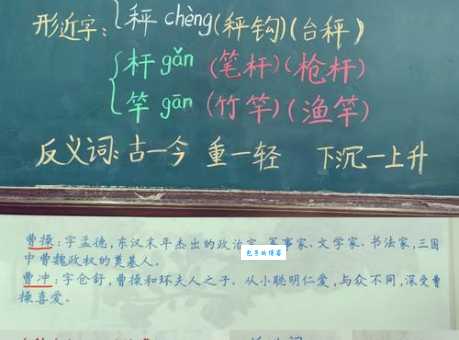 形近字:{秤 chèng(秤钩)(台秤)
杆 gǎn (笔杆)(枪杆)
竿 gān (竹竿)(渔竿)
反义词:古一今 重一轻 下沉一上升
曹操:字孟德,东汉末年杰出的政治家、军事家、文学家、书法家,三国
中曹魏政权的奠基人。
曹冲:字仓舒,曹操和环夫人之子。从小聪明仁爱,与众不同,深受曹
操喜爱。